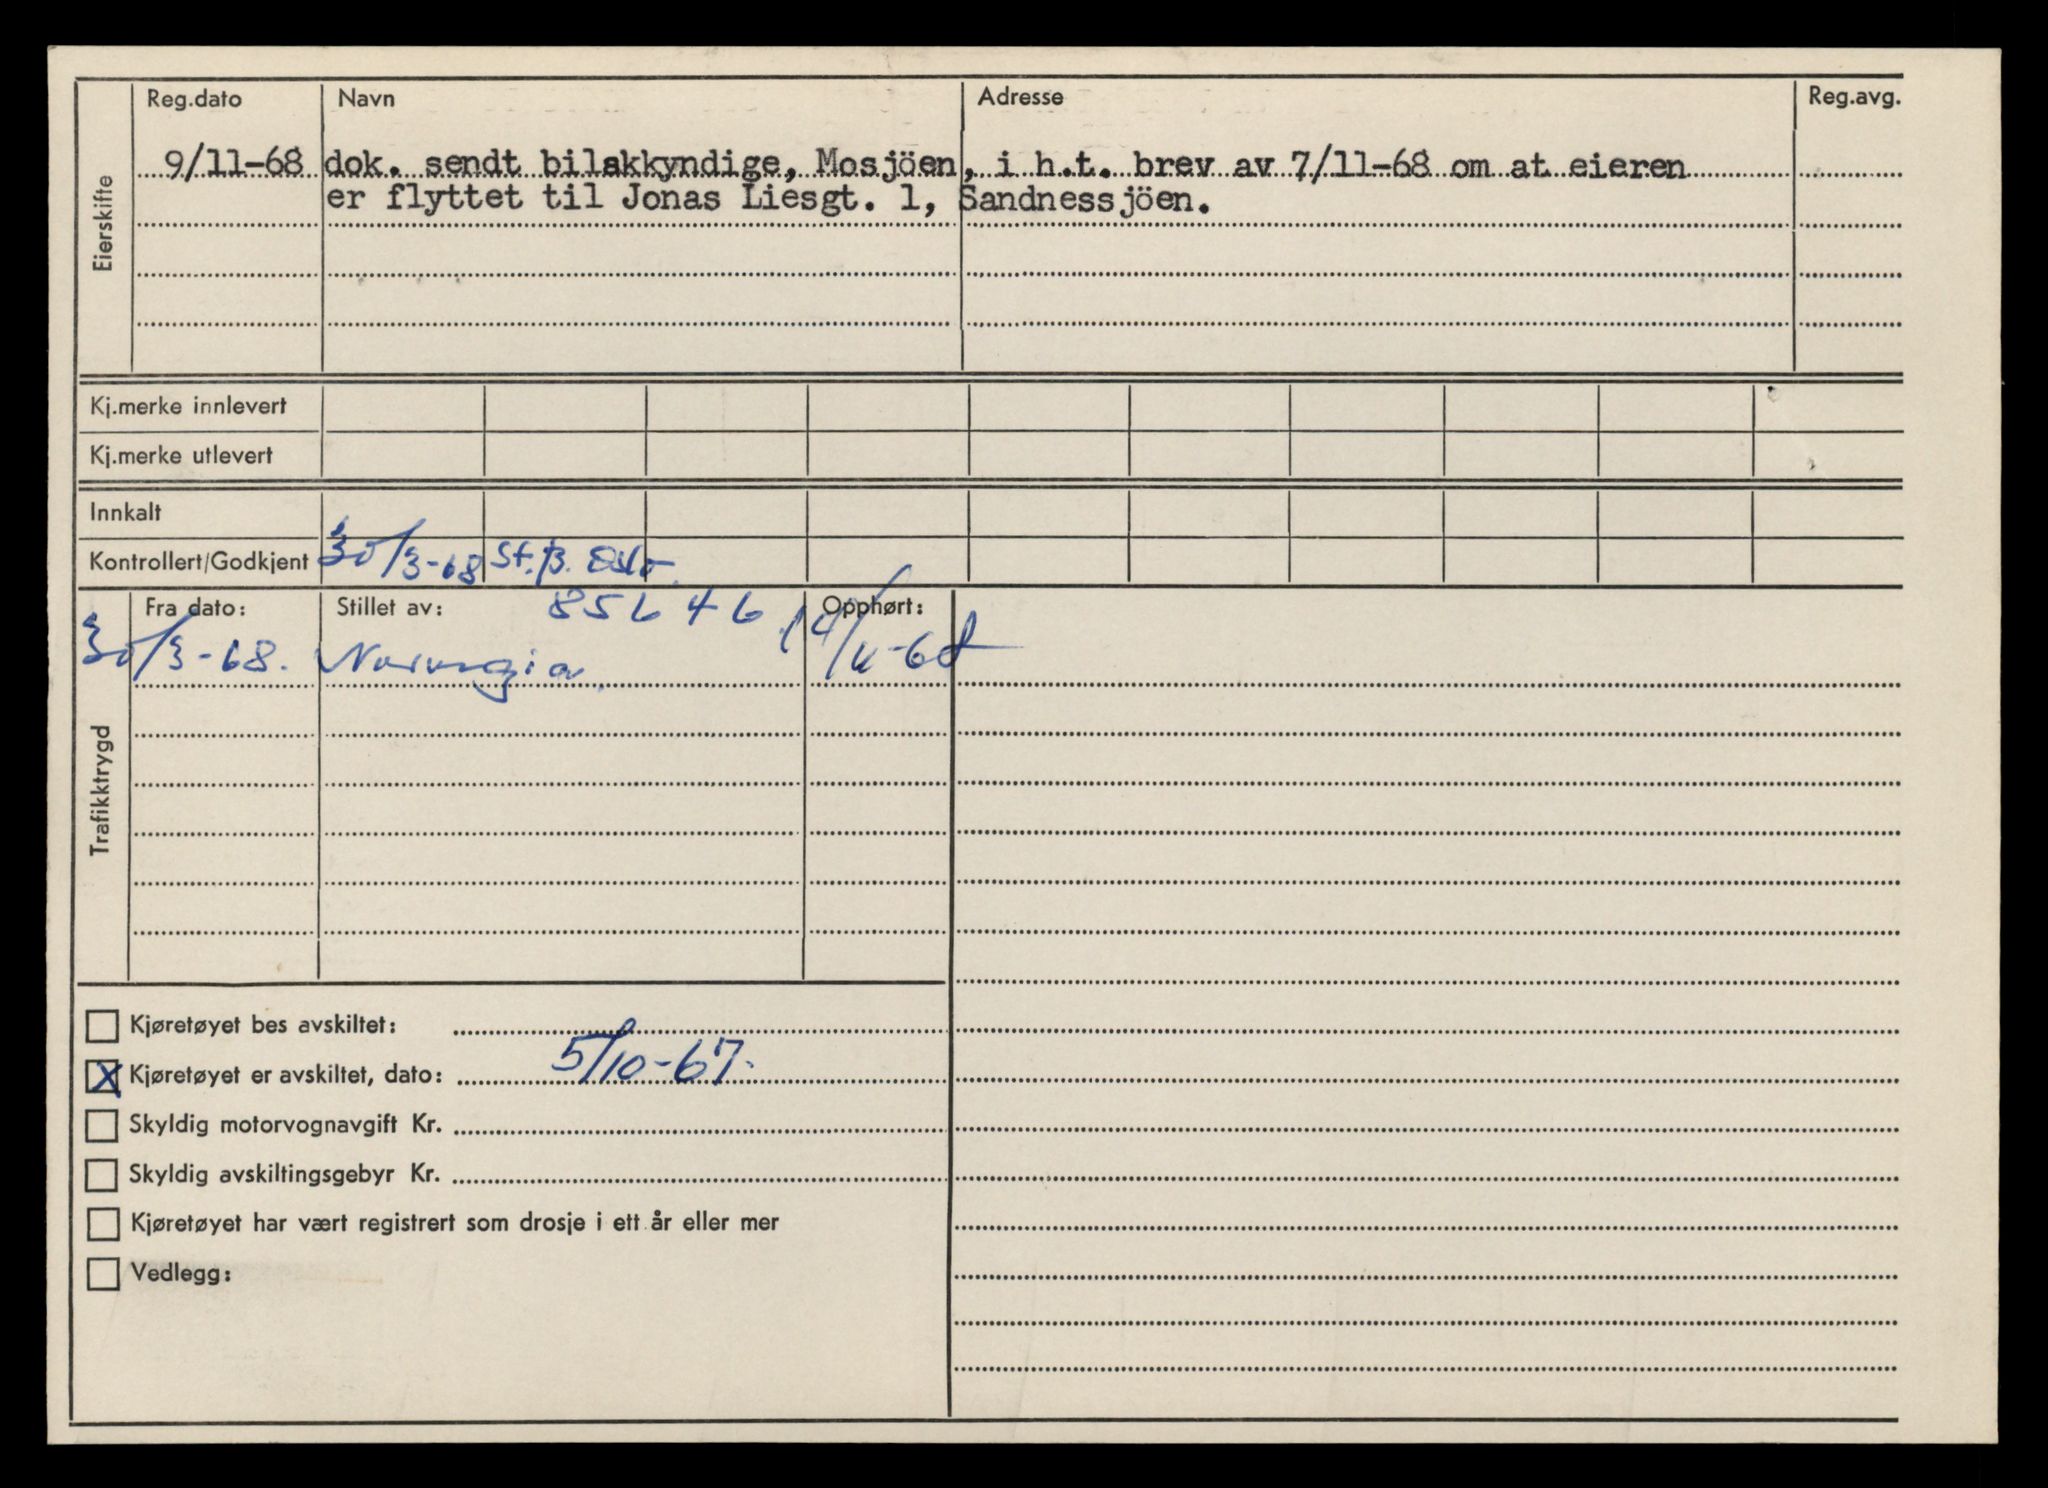 Eierskifte
Reg.dato Navn Adresse Reg.avg.
9/11-68 dok. sendt bilsakkyndige, Mosjöen, i h.t. brev av 7/11-68 om at eieren
er flyttet til Jonas Liesgt. 1, Sandnessjöen.
Kj.merke innlevert
Kj.merke utlevert
Innkalt
Kontrollert/Godkjent 30/3-68 St.B. Oslo.
Trafikktrygd
Fra dato: Stillet av: 85646 Opphørt:
30/3-68. Norvegia. 14/11-68
Kjøretøyet bes avskiltet:
X Kjøretøyet er avskiltet, dato: 5/10-67.
Skyldig motorvognavgift Kr.
Skyldig avskiltingsgebyr Kr.
Kjøretøyet har vært registrert som drosje i ett år eller mer
Vedlegg: